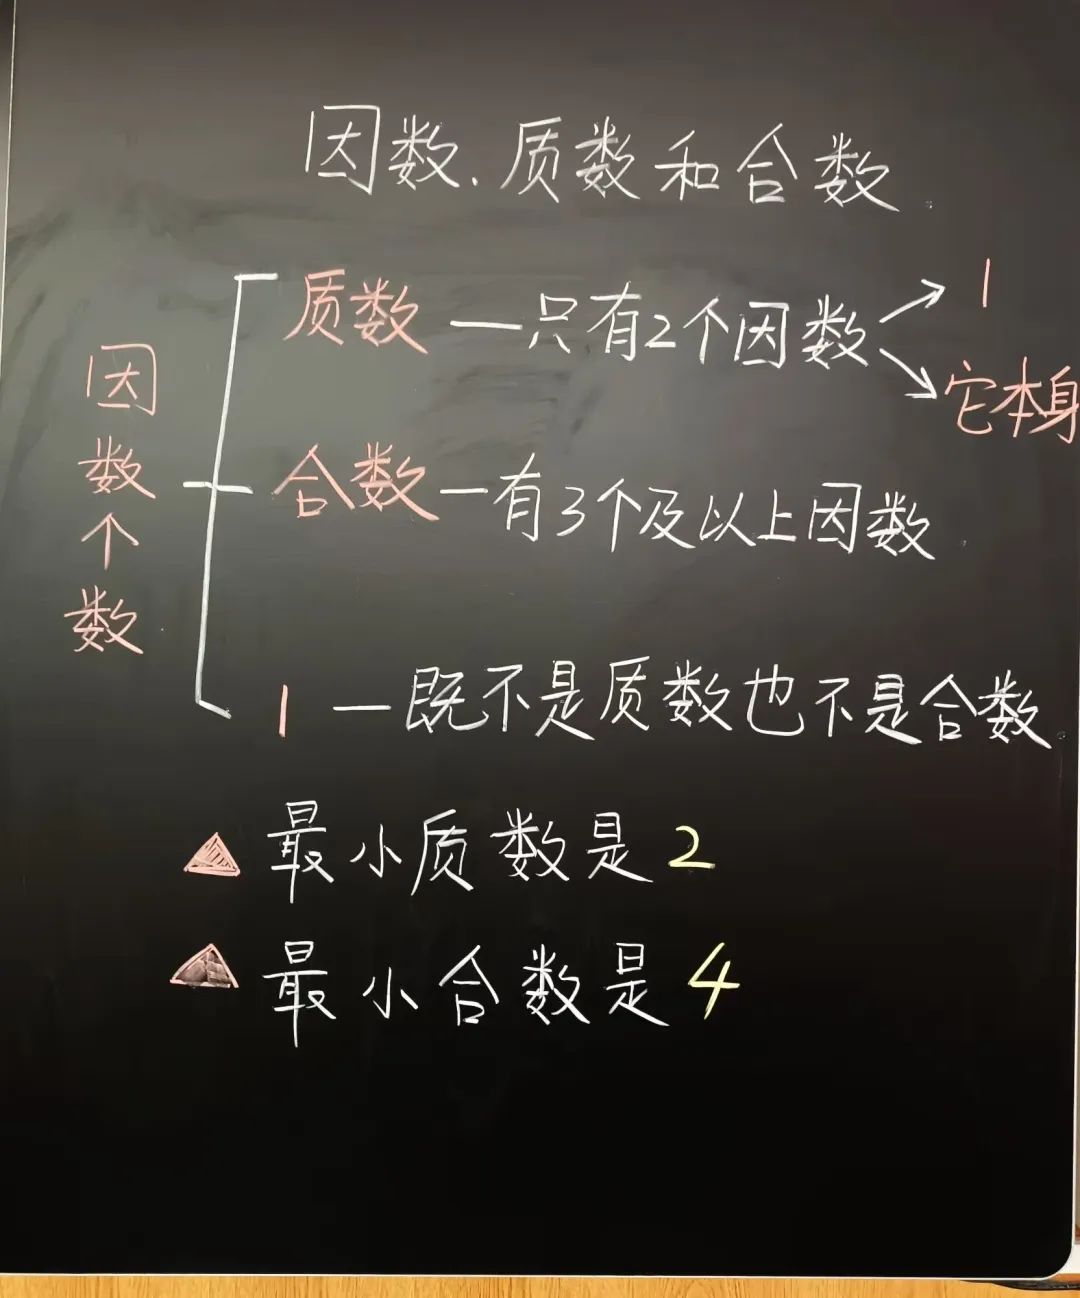 因数、质数和合数
因数个数
质数 — 只有2个因数
1
它本身
合数 — 有3个及以上因数
1 — 既不是质数也不是合数
最小质数是2
最小合数是4